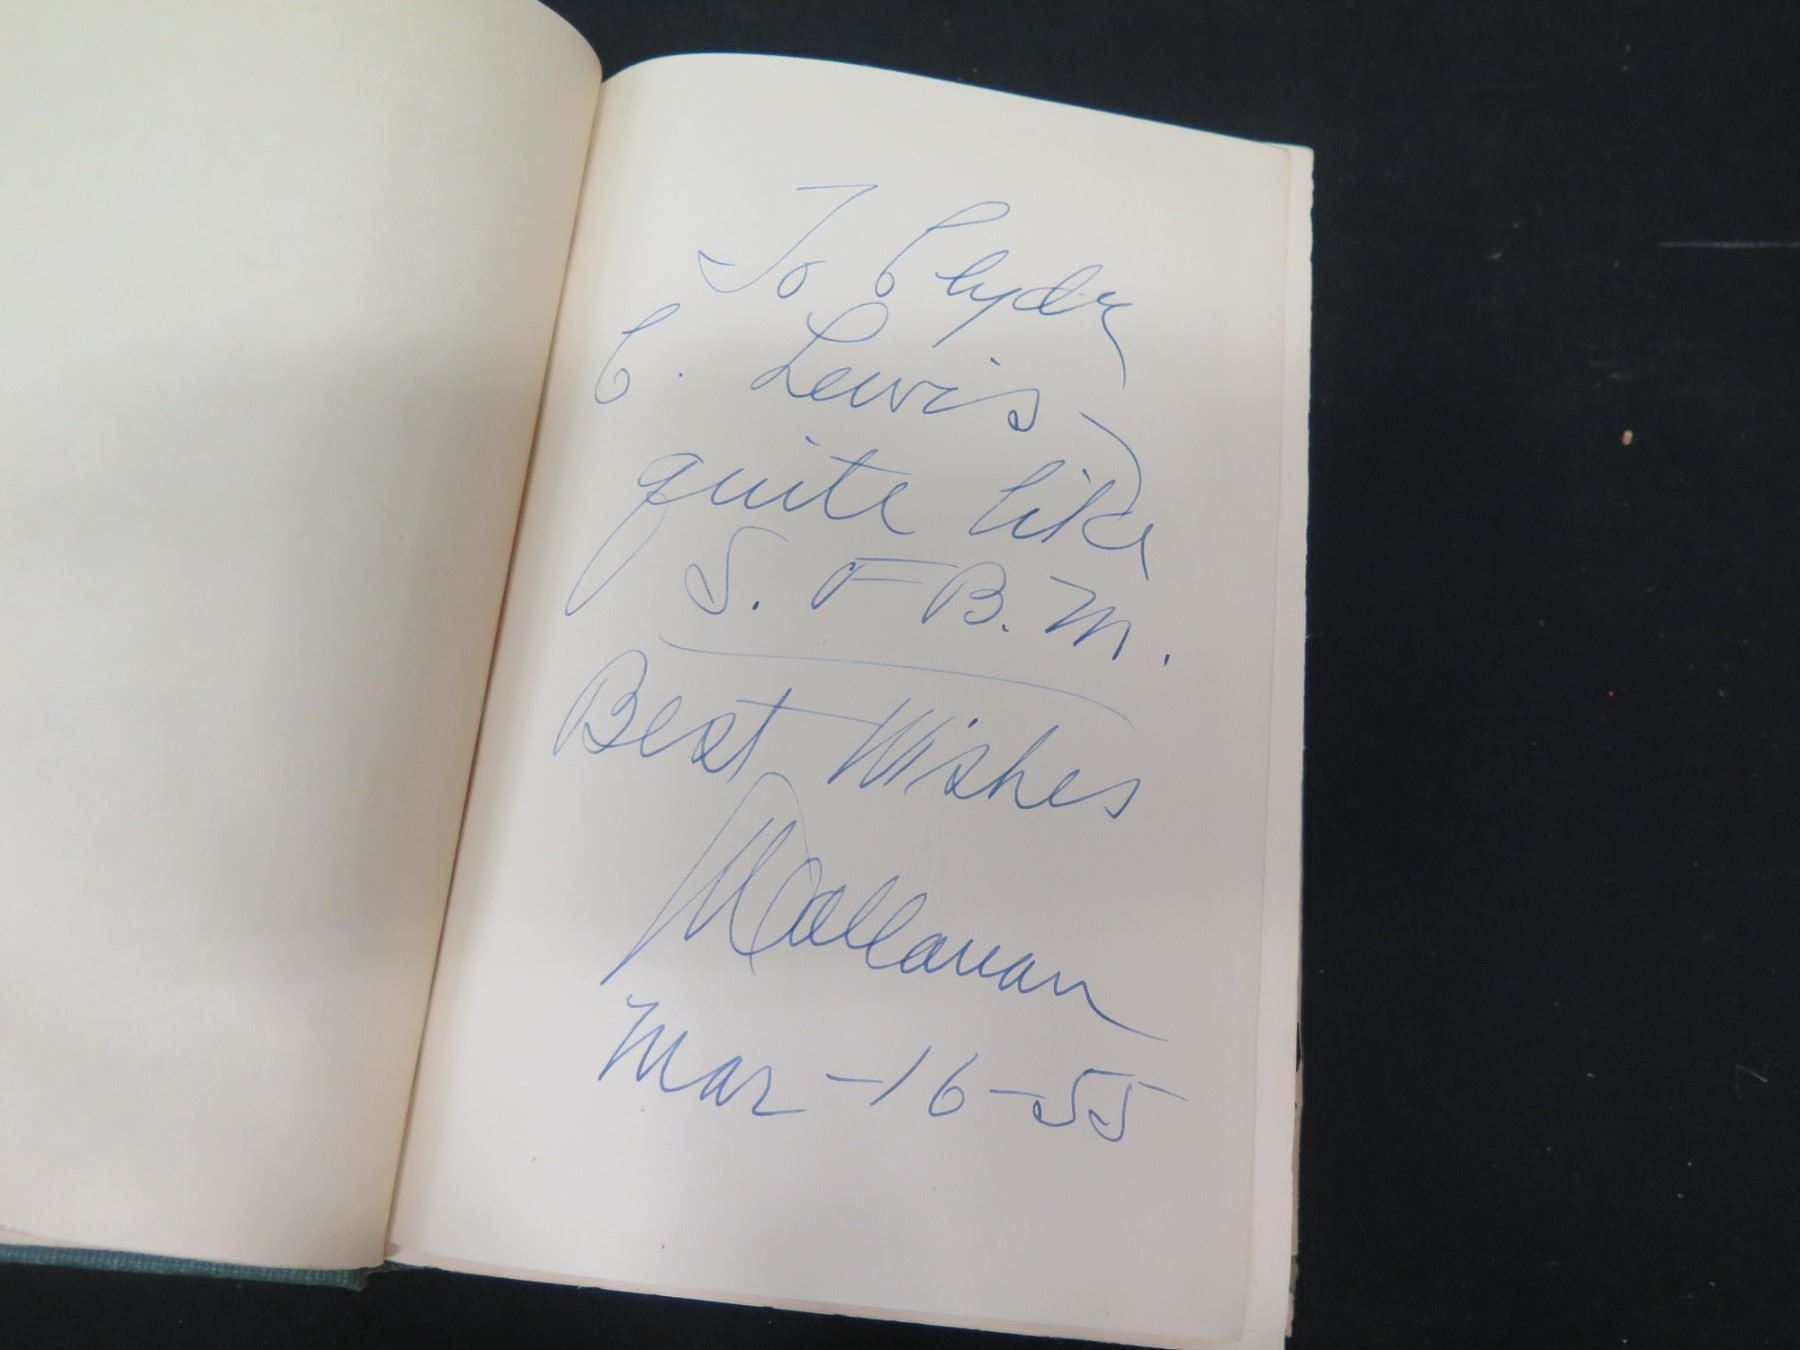 To Clyde
C. Lewis -
quite like
S. F B. M.
Best Wishes
Mar - 16 - 55